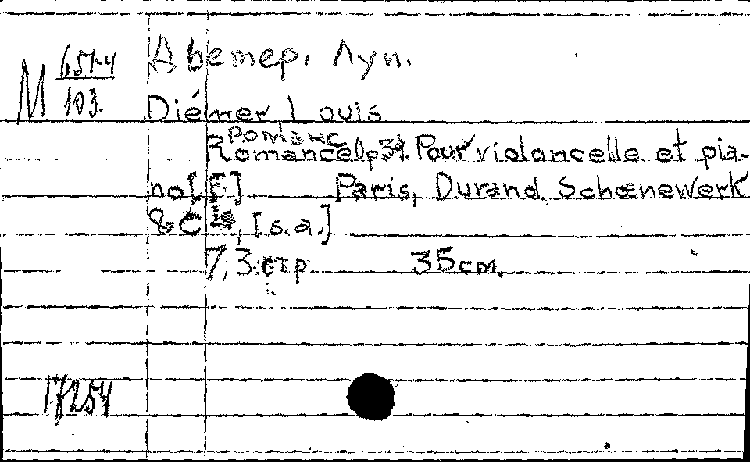 М 651-4
103.
Диемер. Луи.
Diémer Louis
Романс
Romance op34. Pour violoncelle et pia-
no[F] Paris, Durand Schœnewerk
& Cie, [s.a.]
7,3 стр 35 cm.
17254